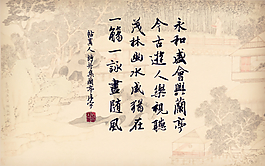 永和盛會與蘭亭
今古遊人樂視聽
茂林幽水咸猶在
一觴一詠盡隨風